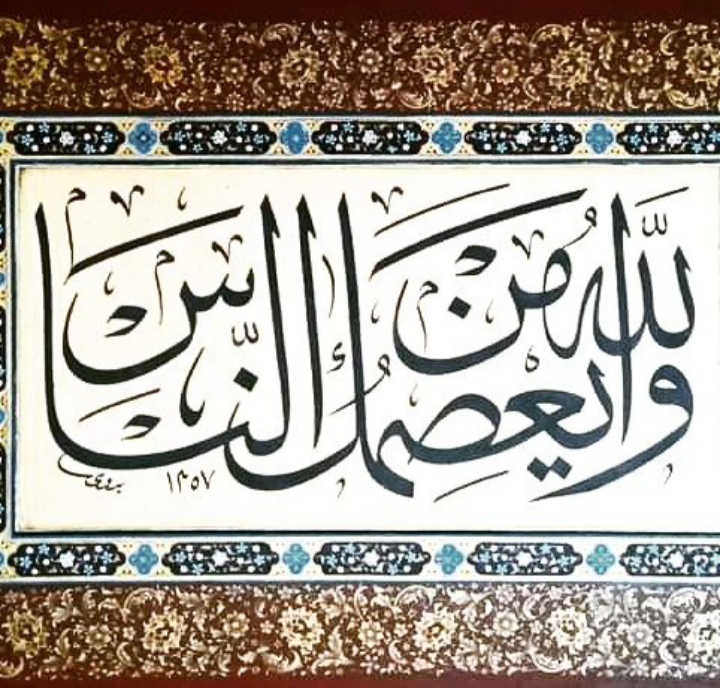 والله يعصمك من الناس
١٣٥٧
بدوي